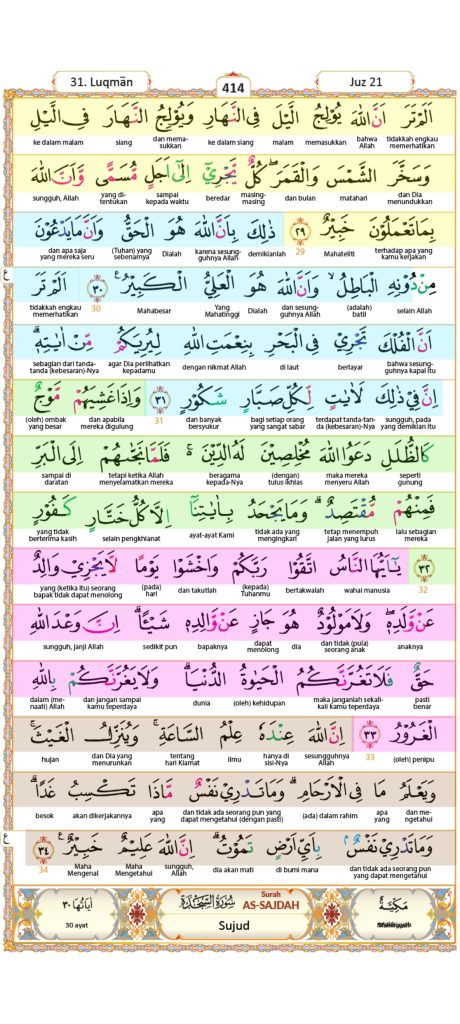 31. Luqmān
414
Juz 21
اَلَمْ تَرَ اَنَّ اللّٰهَ يُوْلِجُ الَّيْلَ فِى النَّهَارِ وَيُوْلِجُ النَّهَارَ فِى الَّيْلِ
tidakkah engkau memerhatikan bahwa Allah memasukkan malam ke dalam siang dan mema- sukkan siang ke dalam malam
وَسَخَّرَ الشَّمْسَ وَالْقَمَرَ ۖ كُلٌّ يَّجْرِيْٓ اِلٰٓى اَجَلٍ مُّسَمًّى وَّاَنَّ اللّٰهَ
dan Dia menundukkan matahari dan bulan masing- masing beredar sampai kepada waktu yang di- tentukan sungguh, Allah
بِمَا تَعْمَلُوْنَ خَبِيْرٌ ٢٩ ذٰلِكَ بِاَنَّ اللّٰهَ هُوَ الْحَقُّ وَاَنَّ مَا يَدْعُوْنَ
terhadap apa yang kamu kerjakan Mahateliti 29 demikianlah karena sesung- guhnya Allah Dialah (Tuhan) yang sebenarnya dan apa saja yang mereka seru
ع
مِنْ دُوْنِهِ الْبَاطِلُۙ وَاَنَّ اللّٰهَ هُوَ الْعَلِيُّ الْكَبِيْرُ ࣖ ٣٠ اَلَمْ تَرَ
selain Allah (adalah) batil dan sesung- guhnya Allah Dialah Yang Mahatinggi Mahabesar 30 tidakkah engkau memerhatikan
اَنَّ الْفُلْكَ تَجْرِيْ فِى الْبَحْرِ بِنِعْمَتِ اللّٰهِ لِيُرِيَكُمْ مِّنْ اٰيٰتِهٖۗ
bahwa sesung- guhnya kapal itu berlayar di laut dengan nikmat Allah agar Dia perlihatkan kepadamu sebagian dari tanda- tanda (kebesaran)-Nya
اِنَّ فِيْ ذٰلِكَ لَاٰيٰتٍ لِّكُلِّ صَبَّارٍ شَكُوْرٍ ٣١ وَاِذَا غَشِيَهُمْ مَّوْجٌ
sungguh, pada yang demikian itu terdapat tanda-tan- da (kebesaran)-Nya bagi setiap orang yang sangat sabar dan banyak bersyukur 31 dan apabila mereka digulung (oleh) ombak yang besar
كَالظُّلَلِ دَعَوُا اللّٰهَ مُخْلِصِيْنَ لَهُ الدِّيْنَ ەۚ فَلَمَّا نَجّٰىهُمْ اِلَى الْبَرِّ
seperti gunung maka mereka menyeru Allah (dengan) tulus ikhlas beragama kepada-Nya tetapi ketika Allah menyelamatkan mereka sampai di daratan
فَمِنْهُمْ مُّقْتَصِدٌۗ وَمَا يَجْحَدُ بِاٰيٰتِنَآ اِلَّا كُلُّ خَتَّارٍ كَفُوْرٍ
lalu sebagian mereka tetap menempuh jalan yang lurus tidak ada yang mengingkari ayat-ayat Kami selain pengkhianat yang tidak berterima kasih
٣٢ يٰٓاَيُّهَا النَّاسُ اتَّقُوْا رَبَّكُمْ وَاخْشَوْا يَوْمًا لَّا يَجْزِيْ وَالِدٌ
32 wahai manusia bertakwalah (kepada) Tuhanmu dan takutlah (pada) hari yang (ketika itu) seorang bapak tidak dapat menolong
عَنْ وَّلَدِهٖۖ وَلَا مَوْلُوْدٌ هُوَ جَازٍ عَنْ وَّالِدِهٖ شَيْـًٔاۗ اِنَّ وَعْدَ اللّٰهِ
anaknya dan tidak (pula) seorang anak dia dapat menolong bapaknya sedikit pun sungguh, janji Allah
حَقٌّ فَلَا تَغُرَّنَّكُمُ الْحَيٰوةُ الدُّنْيَاۗ وَلَا يَغُرَّنَّكُمْ بِاللّٰهِ
pasti benar maka janganlah sekali- kali kamu teperdaya (oleh) kehidupan dunia dan jangan sampai kamu teperdaya dalam (me- naati) Allah
الْغَرُوْرُ ٣٣ اِنَّ اللّٰهَ عِنْدَهٗ عِلْمُ السَّاعَةِۚ وَيُنَزِّلُ الْغَيْثَۚ
(oleh) penipu 33 sesungguhnya Allah hanya di sisi-Nya ilmu tentang hari Kiamat dan Dia yang menurunkan hujan
وَيَعْلَمُ مَا فِى الْاَرْحَامِۗ وَمَا تَدْرِيْ نَفْسٌ مَّاذَا تَكْسِبُ غَدًاۗ
dan me- ngetahui apa yang (ada) dalam rahim tidak ada seorang pun yang dapat mengetahui (dengan pasti) apa yang akan dikerjakannya besok
ع
وَمَا تَدْرِيْ نَفْسٌۢ بِاَيِّ اَرْضٍ تَمُوْتُۗ اِنَّ اللّٰهَ عَلِيْمٌ خَبِيْرٌ ࣖ ٣٤
dan tidak ada seorang pun yang dapat mengetahui di bumi mana dia akan mati sungguh, Allah Maha Mengetahui Maha Mengenal 34
مَكِّيَّةٌ
Surah
AS-SAJDAH
سُوْرَةُ السَّجْدَةِ
اٰيَاتُهَا ٣٠
Sujud
30 ayat